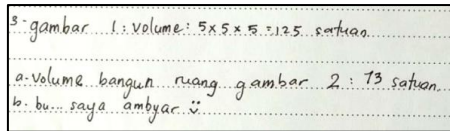 3. gambar 1 : volume : 5 x 5 x 5 = 125 satuan
a. volume bangun ruang gambar 2 : 13 satuan.
b. bu... saya ambyar